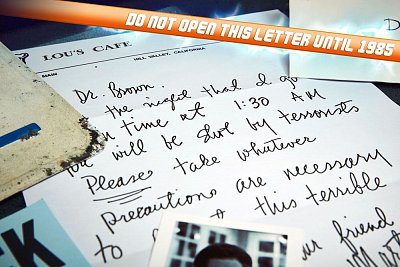 DO NOT OPEN THIS LETTER UNTIL 1985
LOU'S CAFE
HILL VALLEY, CALIFORNIA
MAIN
D
Dr. Brown,
the night that I go
in time at 1:30 AM
you will be shot by terrorists
Please take whatever
precautions are necessary
to this terrible
your friend
K